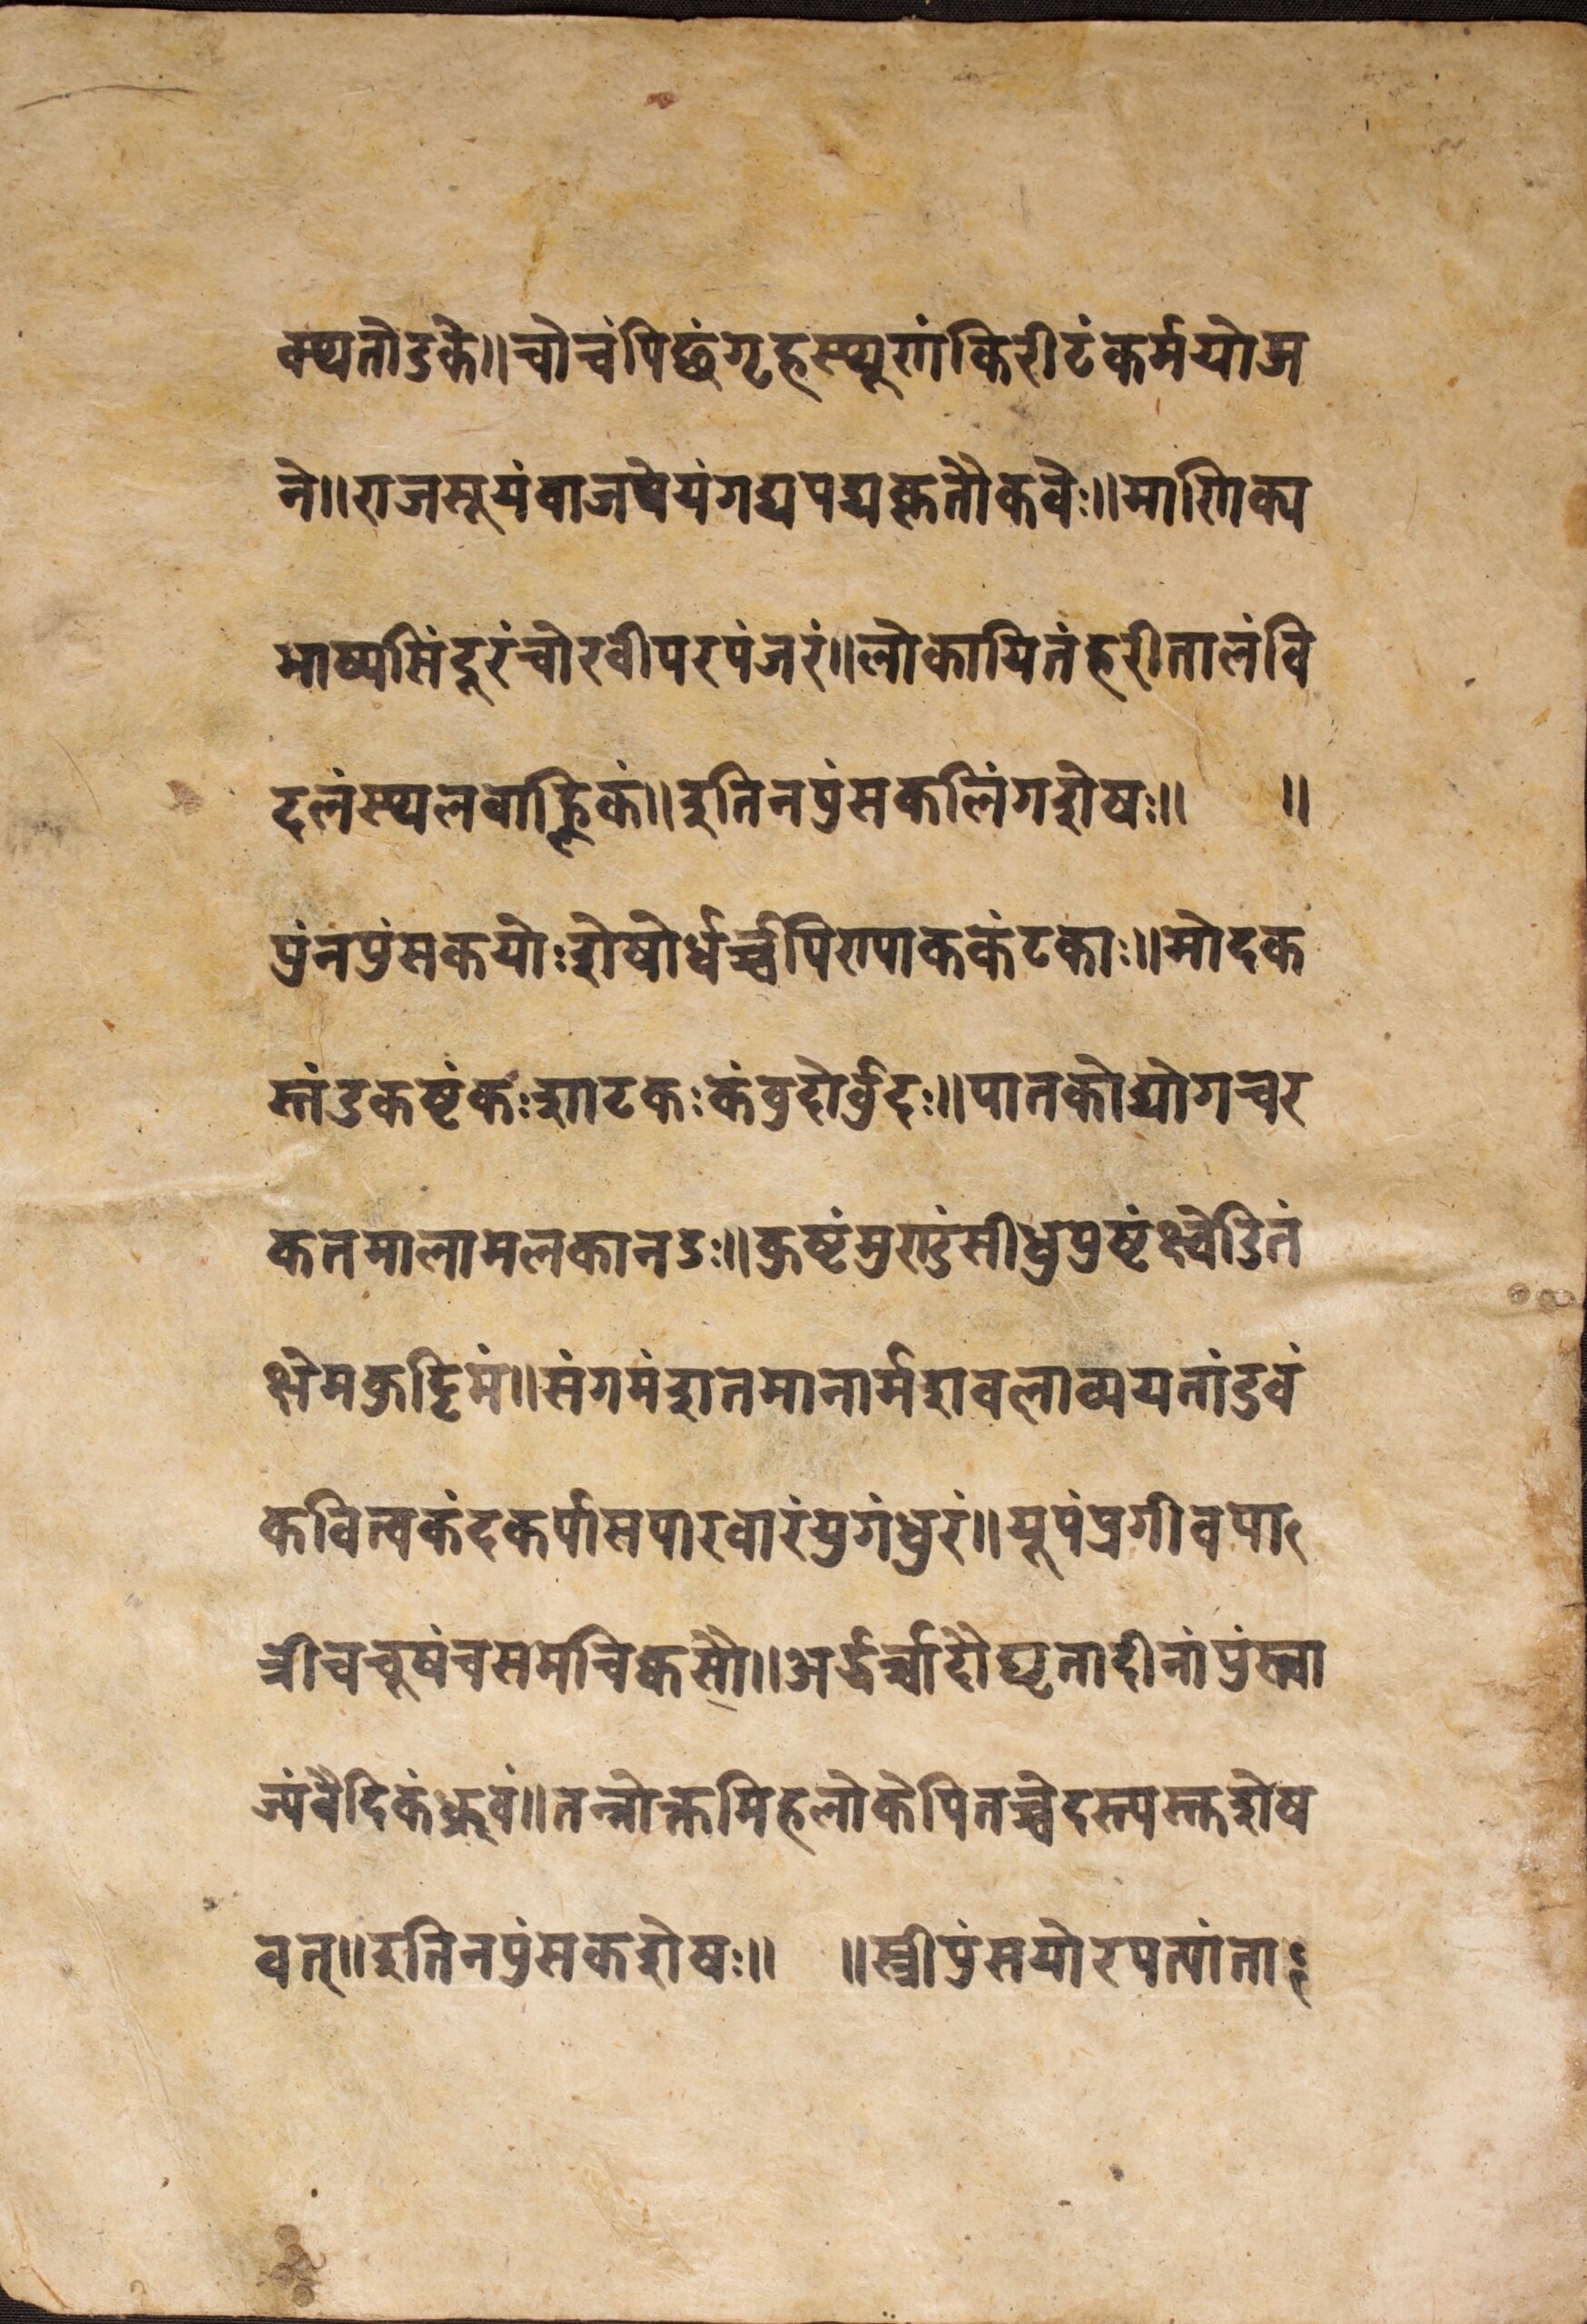 क्थ्यतोडके॥चोचंपिछंगृहस्थूणांकिरीटंकर्मयोज
ने॥राजसूयंवाजपेयंगद्यपद्यकृतौकवेः॥माणिक्य
भाष्यसिंदूरंचोरवीपरपंजरं॥लोकायितंहरीतालंवि
दलंस्थलवाह्लिकं॥इतिनपुंसकलिंगशेषः॥ ॥
पुंनपुंसकयोःशेषोर्धर्च्चपिणपाककंटकाः॥मोदक
स्तंडकष्टंकःशाटकःकंवुदोर्वुदः॥पातकोद्योगचर
कतमालामलकानडः॥कुष्टंमुण्डंसीधुपुष्टंक्ष्वेडितं
क्षेमकुट्टिमं॥संगमंशतमानार्मशवलाव्ययतांडवं
कवित्वकंदकर्पासपारवारंयुगंधुरं॥यूपंप्रगीवपा
त्रीचचूषंचसमचिक्वसौ॥अर्द्धर्च्चादौघृतादीनांपुंस्त्वा
ज्यंवैदिकंध्रुवं॥तन्नोक्तमिहलोकेपितच्चेदस्त्यस्तशेष
वत्॥इतिनपुंसकशेषः॥ ॥स्त्रीपुंसयोरपत्यांताः